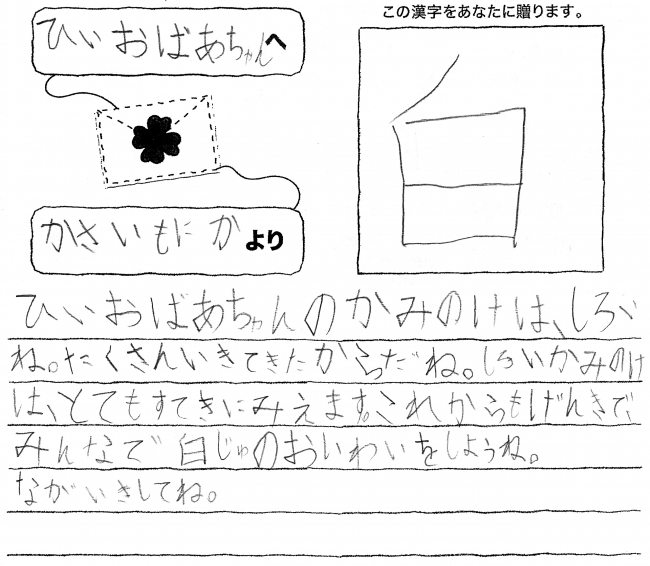 ひいおばあちゃんへ
かさいもにかより
この漢字をあなたに贈ります。
白
ひいおばあちゃんのかみのけは、しろい
ね。たくさんいきてきたからだね。しろいかみのけ
は、とてもすてきにみえます。これからもげんきで、
みんなで白じゅのおいわいをしようね。
ながいきしてね。